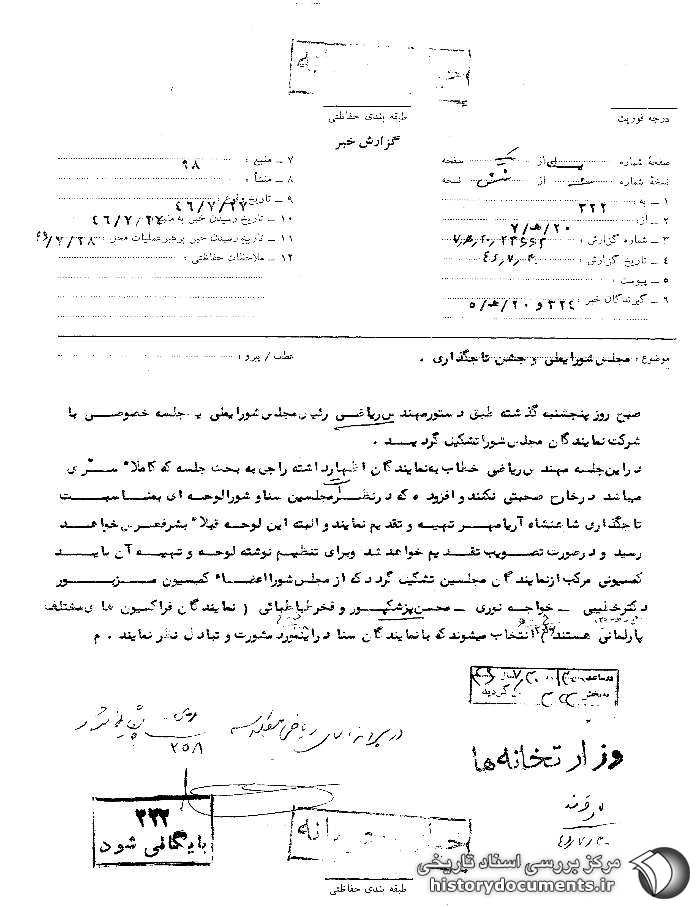 طبقه بندی حفاظتی
درجه فوریت
گزارش خبر
صفحهٔ شماره یک از یک صفحه
نسخهٔ شماره از شش نسخه
۱ ـ به : ۳۲۲
۲ ـ از : ۲۰/ﻫ/۷
۳ ـ شماره گزارش :
۴ ـ تاریخ گزارش :
۵ ـ پیوست :
۶ ـ گیرندگان خبر : ۳۲۴ و ۲۰/ﻫ/۵
۷ ـ منبع : ۹۸
۸ ـ منشأ :
۹ ـ تاریخ وقوع : ۴۶/۷/۲۷
۱۰ ـ تاریخ رسیدن خبر به منبع :
۱۱ ـ تاریخ رسیدن خبر برهبر عملیات محل : ۴۶/۷/۲۸
۱۲ ـ ملاحظات حفاظتی :
موضوع : مجلس شورایملی و جشن تاجگذاری .
عطف / پیرو :
صبح روز پنجشنبه گذشته طبق دستور مهندس ریاضی رئیس مجلس شورایملی جلسه خصوصی با
شرکت نمایندگان مجلس شورا تشکیل گردید .
در این جلسه مهندس ریاضی خطاب به نمایندگان اظهار داشته راجع به بحث جلسه که کاملاً سرّی
میباشد در خارج صحبتی نکنند و افزوده که در نظر است مجلسین سنا و شورا لوحه ای بمناسبت
تاجگذاری شاهنشاه آریامهر تهیه و تقدیم نمایند و البته این لوحه قبلاً بشرفعرض خواهد
رسید و در صورت تصویب تقدیم خواهد شد وبرای تنظیم نوشته لوحه و تهیه آن باید
کمیسیونی مرکب از نمایندگان مجلسین تشکیل گردد که از مجلس شورا اعضاء کمیسیون مزبور
دکتر خطیبی ـ خواجه نوری ـ محسن پزشکپور و فخر طباطبائی ( نمایندگان فراکسیون های مختلف
پارلمانی هستند ) انتخاب میشوند که با نمایندگان سنا در اینمورد مشورت و تبادل نظر نمایند . م
وزارتخانه ها
۲۵۸
۳۲۲
بایگانی شود
طبقه بندی حفاظتی
مرکز بررسی اسناد تاریخی
historydocuments.ir